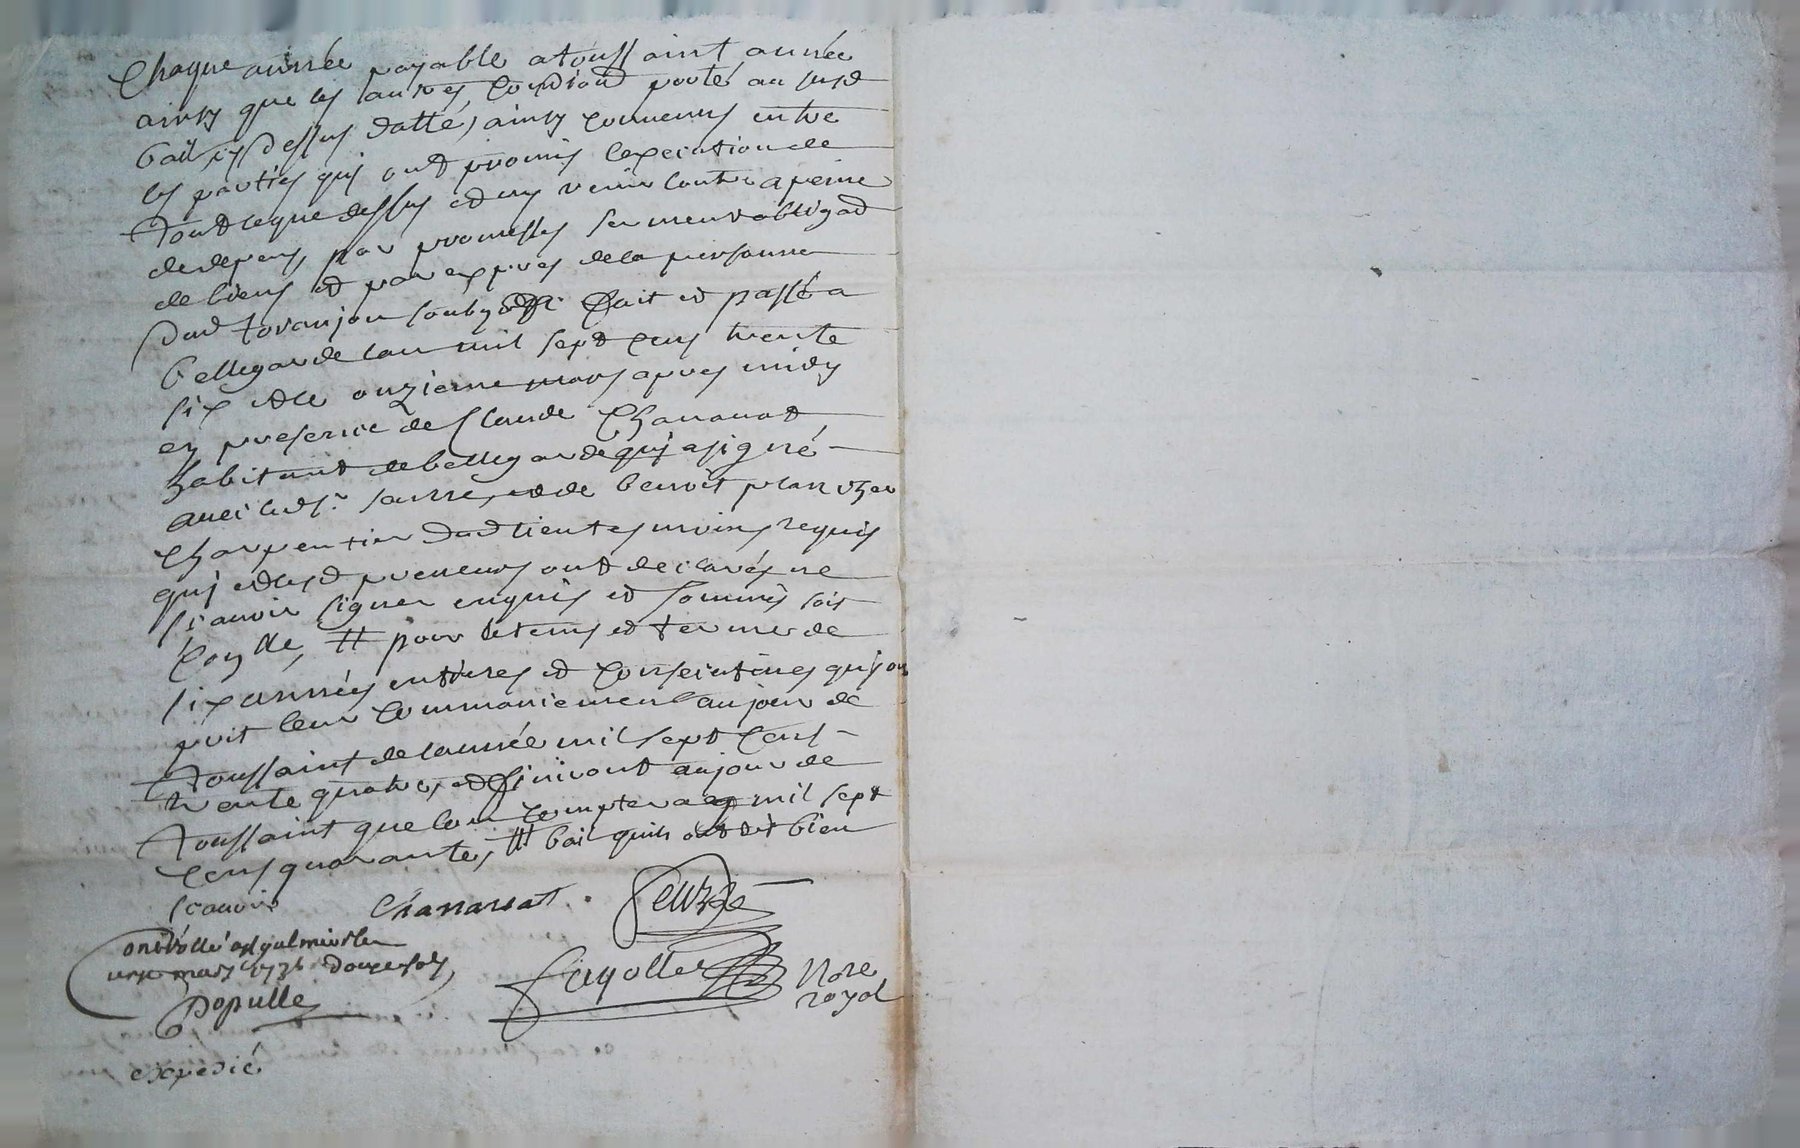 Chaque année payable a toussaint année
ainsy que les autres condions porté au susd
bail cy dessus datté, ainsy convenus entre
les parties quj ont promis lexecution de
tout ceque dessus et ny venir contre a peine
de depens, par promesses serment obligaõ
de biens et par expres de la personne
dud fait et passé a
bellegarde lan mil sept cens trente
six et le onzieme mars apres midy
en presence de Claude Chanauat
habitant de bellegarde quj a signé
auec led sr. et de benoit
charpentier dud lieu tesmoins requis
quj et lesd preneurs ont declarés ne
scauoir signer enquis et sommés soit
# pour le tems et terme de
six années entieres et consecutiues quj on
prit leur commancement au jour de
toussaint de lannée mil sept cens
trente quatre, et finiront au jour de
toussaint que lon comptera mil sept
cens quarante, # bail quils ont dit bien
scauoir
Chanauat
onze mars 1736
Populle
Nore
royal
expedié